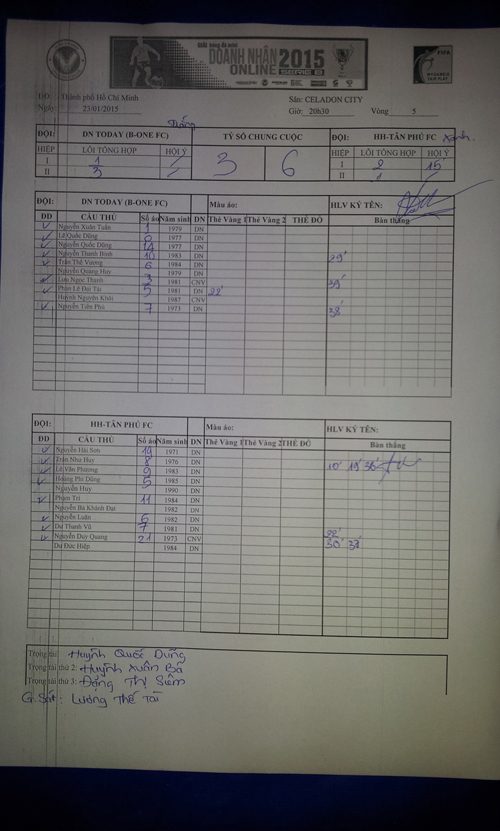 GIẢI bóng đá mini
DOANH NHÂN 2015
ONLINE SERIE B
FIFA
MY GAME IS FAIR PLAY
ĐĐ: Thành phố Hồ Chí Minh Sân: CELADON CITY
Ngày 23/01/2015 Giờ: 20h30 Vòng 5
ĐỘI: DN TODAY (B-ONE FC) TỶ SỐ CHUNG CUỘC ĐỘI: HH-TÂN PHÚ FC Xanh
HIỆP LỖI TỔNG HỢP HỘI Ý 3 6 HIỆP LỖI TỔNG HỢP HỘI Ý
I 1 I 2 15'
II 3 II 1
ĐỘI: DN TODAY (B-ONE FC) Màu áo: HLV KÝ TÊN:
DD CẦU THỦ Số áo Năm sinh DN Thẻ Vàng 1 Thẻ Vàng 2 THẺ ĐỎ Bàn thắng
Nguyễn Xuân Tuấn 1 1979 DN
Lê Quốc Dũng 1977 DN
Nguyễn Quốc Dũng 14 1977 DN
Nguyễn Thanh Bình 10 1983 DN 29'
Trần Thế Vương 6 1984 DN
Nguyễn Quang Huy 1979 DN
Lưu Ngọc Thanh 3 1981 CNV 39'
Phan Lê Đại Tài 5 1981 DN 22'
Huỳnh Nguyên Khôi 1987 CNV
Nguyễn Tiến Phú 7 1973 DN 38'
ĐỘI: HH-TÂN PHÚ FC Màu áo: HLV KÝ TÊN:
DD CẦU THỦ Số áo Năm sinh DN Thẻ Vàng 1 Thẻ Vàng 2 THẺ ĐỎ Bàn thắng
Nguyễn Hải Sơn 19 1971 DN
Trần Như Huy 8 1976 DN 10' 19' 36'
Lê Văn Phương 9 1983 DN
Hoàng Phi Dũng 5 1985 DN
Nguyễn Huy 1990 DN
Phạm Trí 11 1984 DN
Nguyễn Bá Khánh Đạt 1982 DN
Nguyễn Luân 6 1982 DN
Dư Thanh Vũ 7 1981 DN
Nguyễn Duy Quang 21 1973 CNV 22'
Dư Đức Hiệp 1984 DN 30' 38'
Trọng tài: Huỳnh Quốc Dũng
Trọng tài thứ 2: Huỳnh Xuân Bá
Trọng tài thứ 3: Đặng Thị Siêm
G.Sát: Lương Thế Tài